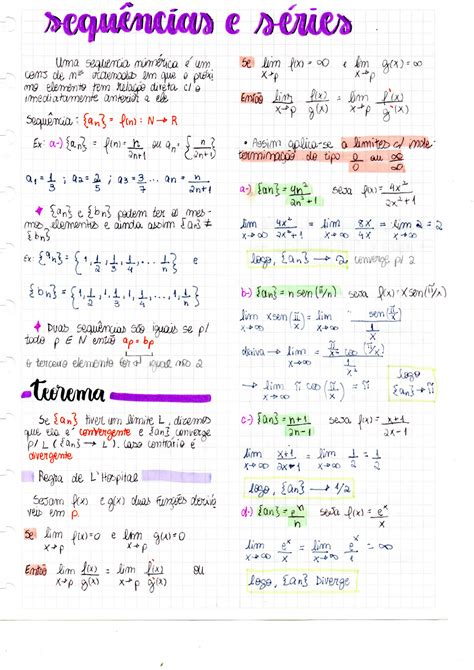 sequências e séries
Uma sequencia númerica é um
conj de nºs ordenados em que o próxi
mo elemento tem relação direta c/ o
imediatamente anterior a ele
Sequência: {an} = f(n): N → R
Ex: a-) {an} = f(n) = n/2n+1 ou an = {n/2n+1}
a1 = 1/3 ; a2 = 2/5 ; a3 = 3/7 ... an = n/2n+1
{an} e {bn} podem ter os mes-
mos elementos e ainda assim {an} ≠
{bn}
Ex: {an} = {1, 1/2, 1/3, 1/4, ... 1/n} e
{bn} = {1, 1/2, 1, 1/3, 1, 1/4 ... 1/n}
Duas sequências são iguais se p/
todo p ∈ N então ap = bp
o terceiro elemento for igual não 2
teorema
Se {an} tiver um limite L, dizemos
que ela é convergente e {an} converge
p/ L ({an} → L). caso contrário é
divergente
Regra de L'Hospital
Sejam f(x) e g(x) duas funções derivá
veis em p.
Se lim x→p f(x) = 0 e lim x→p g(x) = 0
Então lim x→p f(x)/g(x) = lim x→p f'(x)/g'(x) ou
Se lim x→p f(x) = ∞ e lim x→p g(x) = ∞
Então lim x→p f(x)/g(x) = lim x→p f'(x)/g'(x)
• Assim aplica-se a limites c/ inde-
terminação do tipo 0/0 ou ∞/∞
a-) {an} = 4n²/2n²+1 seja f(x) = 4x²/2x²+1
lim x→∞ 4x²/2x²+1 = lim x→∞ 8x/4x = lim x→∞ 2 = 2
logo, {an} → 2 converge p/ 2
b-) {an} = n sen(π/n) seja f(x) = x sen(π/x)
lim x→∞ x sen(π/x) = lim x→∞ sen(π/x)/1/x
lim x→∞ π cos(π/x) = π
logo
{an} → π
c-) {an} = n+1/2n-1 seja f(x) = x+1/2x-1
lim x→∞ x+1/2x-1 = lim x→∞ 1/2 = 1/2
logo, {an} → 1/2
d-) {an} = eⁿ/n seja f(x) = eˣ/x
lim x→∞ eˣ/x = lim x→∞ eˣ/1 = ∞
logo, {an} Diverge